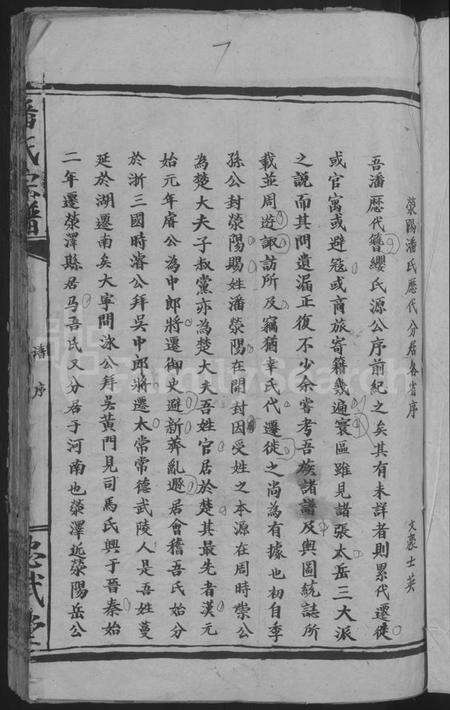 7
滎陽潘氏歷代分居各省序
文裘士英
吾潘歷代簪纓氏源公序前紀之矣其有未詳者則累代遷徙
或官寓或避寇或商旅寄籍幾遍寰區雖見諸張太岳三大派
之說而其間遺漏正復不少余嘗考吾族諸譜及輿圖統誌所
載並周遊諏訪所及竊猶幸氏代遷徙之尚為有據也初自季
孫公封滎陽賜姓潘滎陽在開封因受姓之本源在周時崇公
為楚大夫子叔黨亦為楚大夫吾姓官居於楚其最先者漢元
始元年睿公為中郎將遷御史避新莽亂遯居會稽吾氏始分
於浙三國時濬公拜吳中郎將遷太常常德武陵人是吾姓蔓
延於湖遷南矣大寧間泳公拜吳黃門見司馬氏興于晉泰始
二年遷滎澤縣居焉吾氏又分居于河南也滎澤近滎陽岳公
潘氏宗譜
譜序
FamilySearch